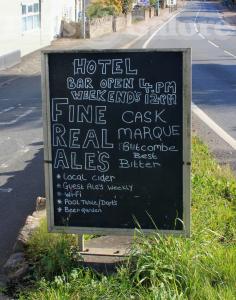 HOTEL
BAR OPEN 4.PM
WEEKENDS 12PM
FINE CASK
REAL MARQUE
ALES Butcombe
Best
Bitter
* Local Cider
* Guest Ales Weekly
* Wi-Fi
* Pool Table/Darts
* Beer garden